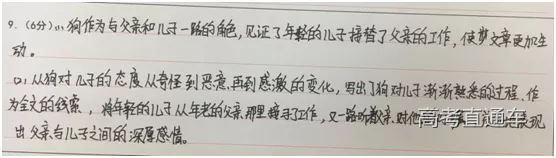 9.(6分)(1)狗作为与父亲和儿子一路的角色,见证了年轻的儿子接替了父亲的工作,使文章更加生
动。
(2)从狗对儿子的态度从奇怪到恶意,再到感激的变化,写出了狗对儿子渐渐熟悉的过程,作
为全文的线索,将年轻的儿子从年老的父亲那里接手了工作,又一路听教亲对他
出父亲与儿子之间的深厚感情。
高考直通车